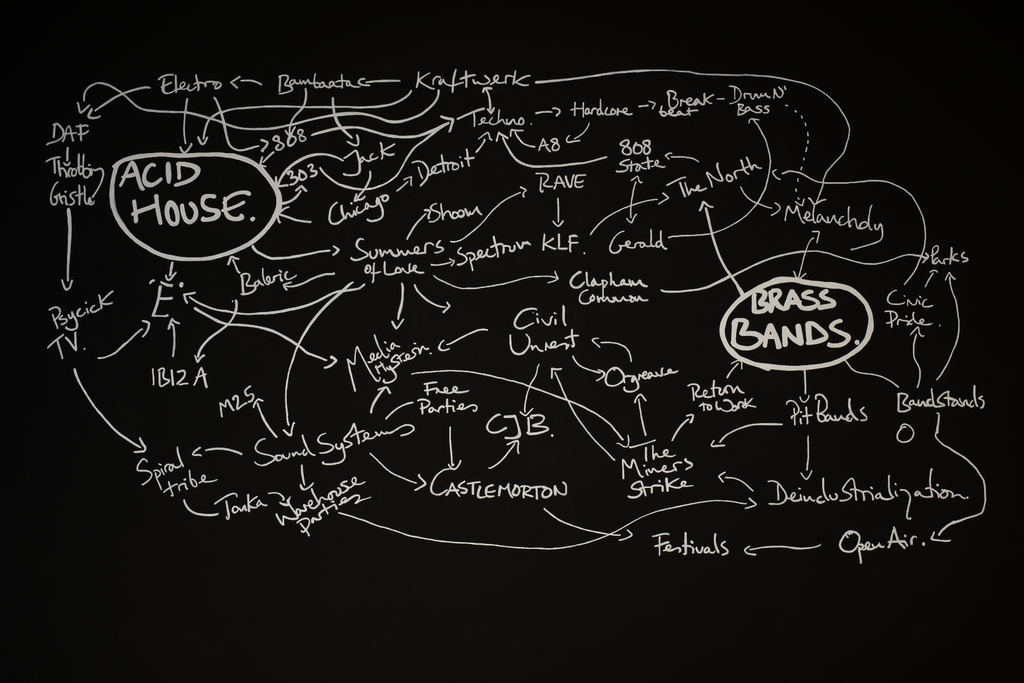 Electro
Bambaataa
Kraftwerk
DAF
Throbbing
Gristle
808
Techno.
Hardcore
Break
beat
Drum N'
Bass
A8
808
State
Jack
303
ACID
HOUSE.
Detroit
Chicago
RAVE
The North
Melancholy
Shoom
Summers
of Love
Spectrum
KLF.
Gerald
Parks
Baleric
Clapham
Common
BRASS
BANDS.
Civic
Pride.
'E'.
Psycick
TV.
IBIZA
Media
Hysteria.
Civil
Unrest
Orgreave
Return
to Work
Pit Bands
Bandstands
M25
Free
Parties
CJB.
Sound Systems
The
Miners
Strike
Spiral
tribe
CASTLEMORTON
Deindustrialization.
Tonka
Warehouse
Parties
Festivals
Open Air.